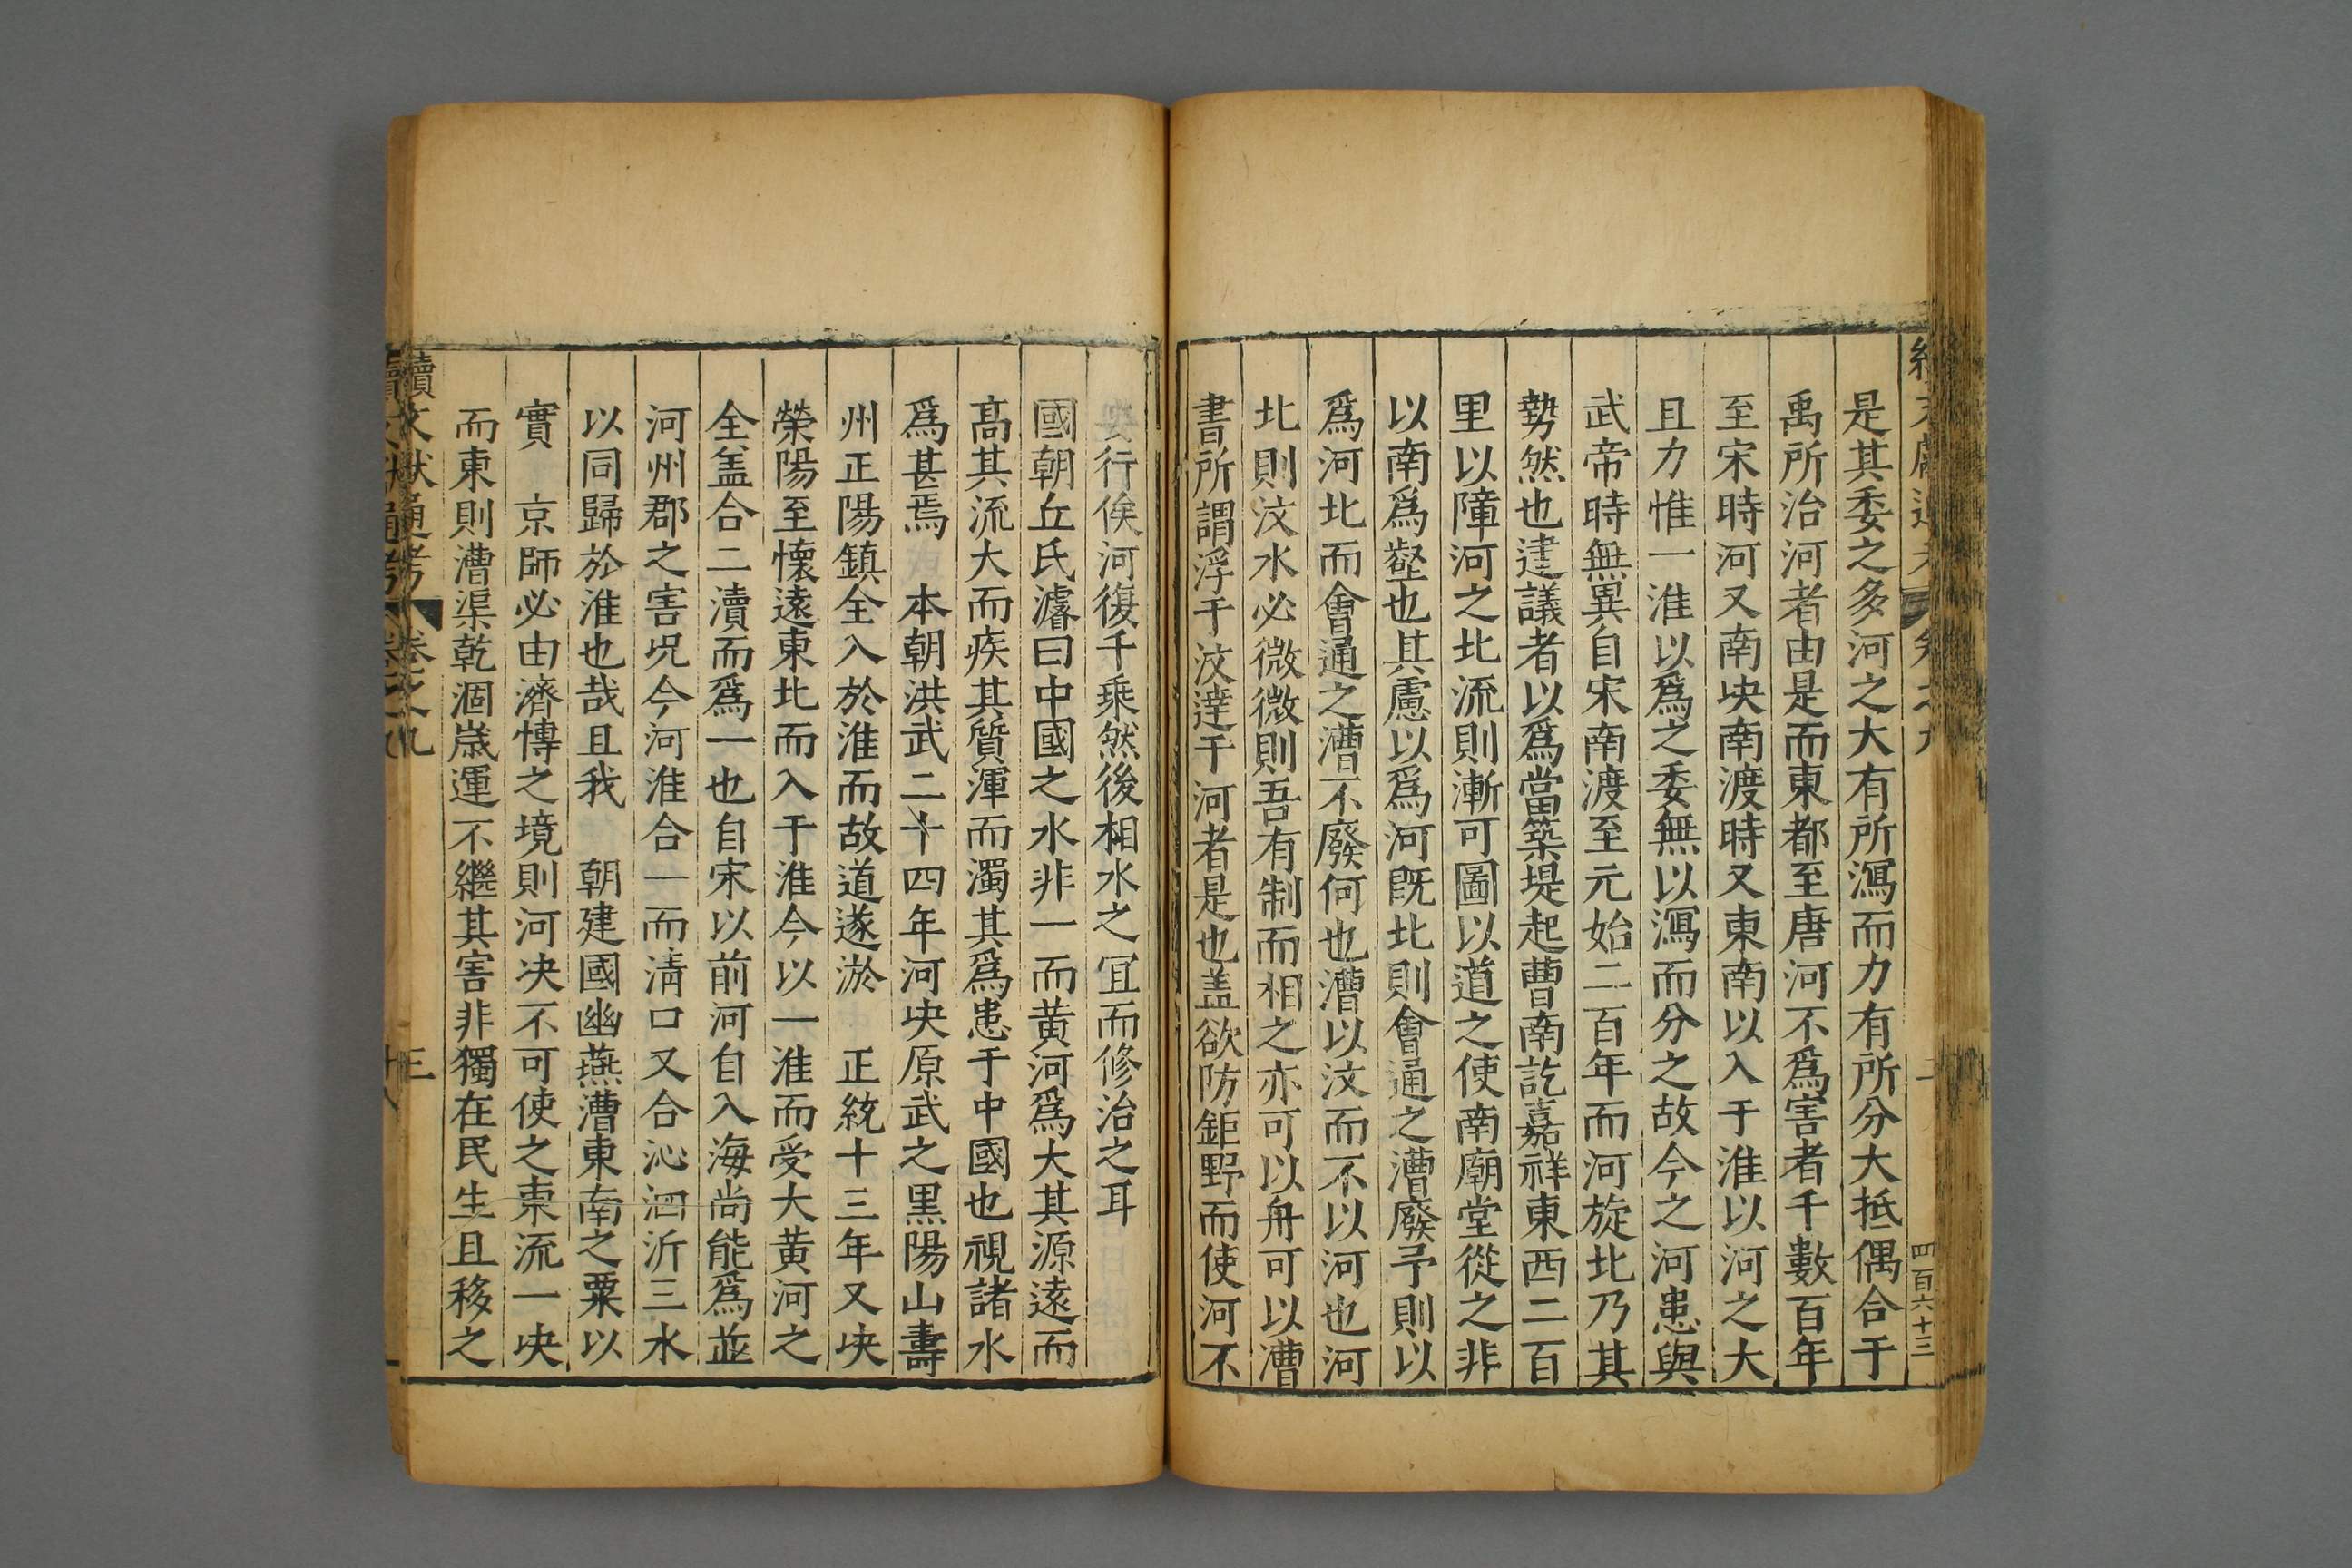 是其委之多河之大有所㵼而力有所分大抵偶合于
禹所治河者由是而東都至唐河不爲害者千數百年
至宋時河又南决南渡時又東南以入于淮以河之大
且力惟一淮以爲之委無以㵼而分之故今之河患與
武帝時無異自宋南渡至元始二百年而河旋北乃其
勢然也建議者以爲當築堤起曹南訖嘉祥東西二百
里以障河之北流則漸可圖以道之使南廟堂從之非
以南爲壑也其慮以爲河旣北則會通之漕廢予則以
爲河北而會通之漕不廢何也漕以汶而不以河也河
北則汶水必微微則吾有制而相之亦可以舟可以漕
書所謂浮于汶達于河者是也盖欲防鉅野而使河不
行俟河復千乘然後相水之冝而修治之耳
國朝丘氏濬曰中國之水非一而黃河爲大其源遠而
髙其流大而疾其質渾而濁其爲患于中國也視諸水
爲甚焉　本朝洪武二十四年河决原武之黑陽山壽
州正陽鎮全入於淮而故道遂淤　正統十三年又决
滎陽至懷遠東北而入于淮今以一淮而受大黃河之
全盖合二瀆而爲一也自宋以前河自入海尚能爲並
河州郡之害况今河淮合一而淸口又合沁泗沂三水
以同歸於淮也哉且我　朝建國幽燕漕東南之粟以
實　京師必由濟博之境則河决不可使之東流一决
而東則漕渠乾涸歲運不繼其害非獨在民生且移之
續文獻通考
卷之九
三
四百六十三